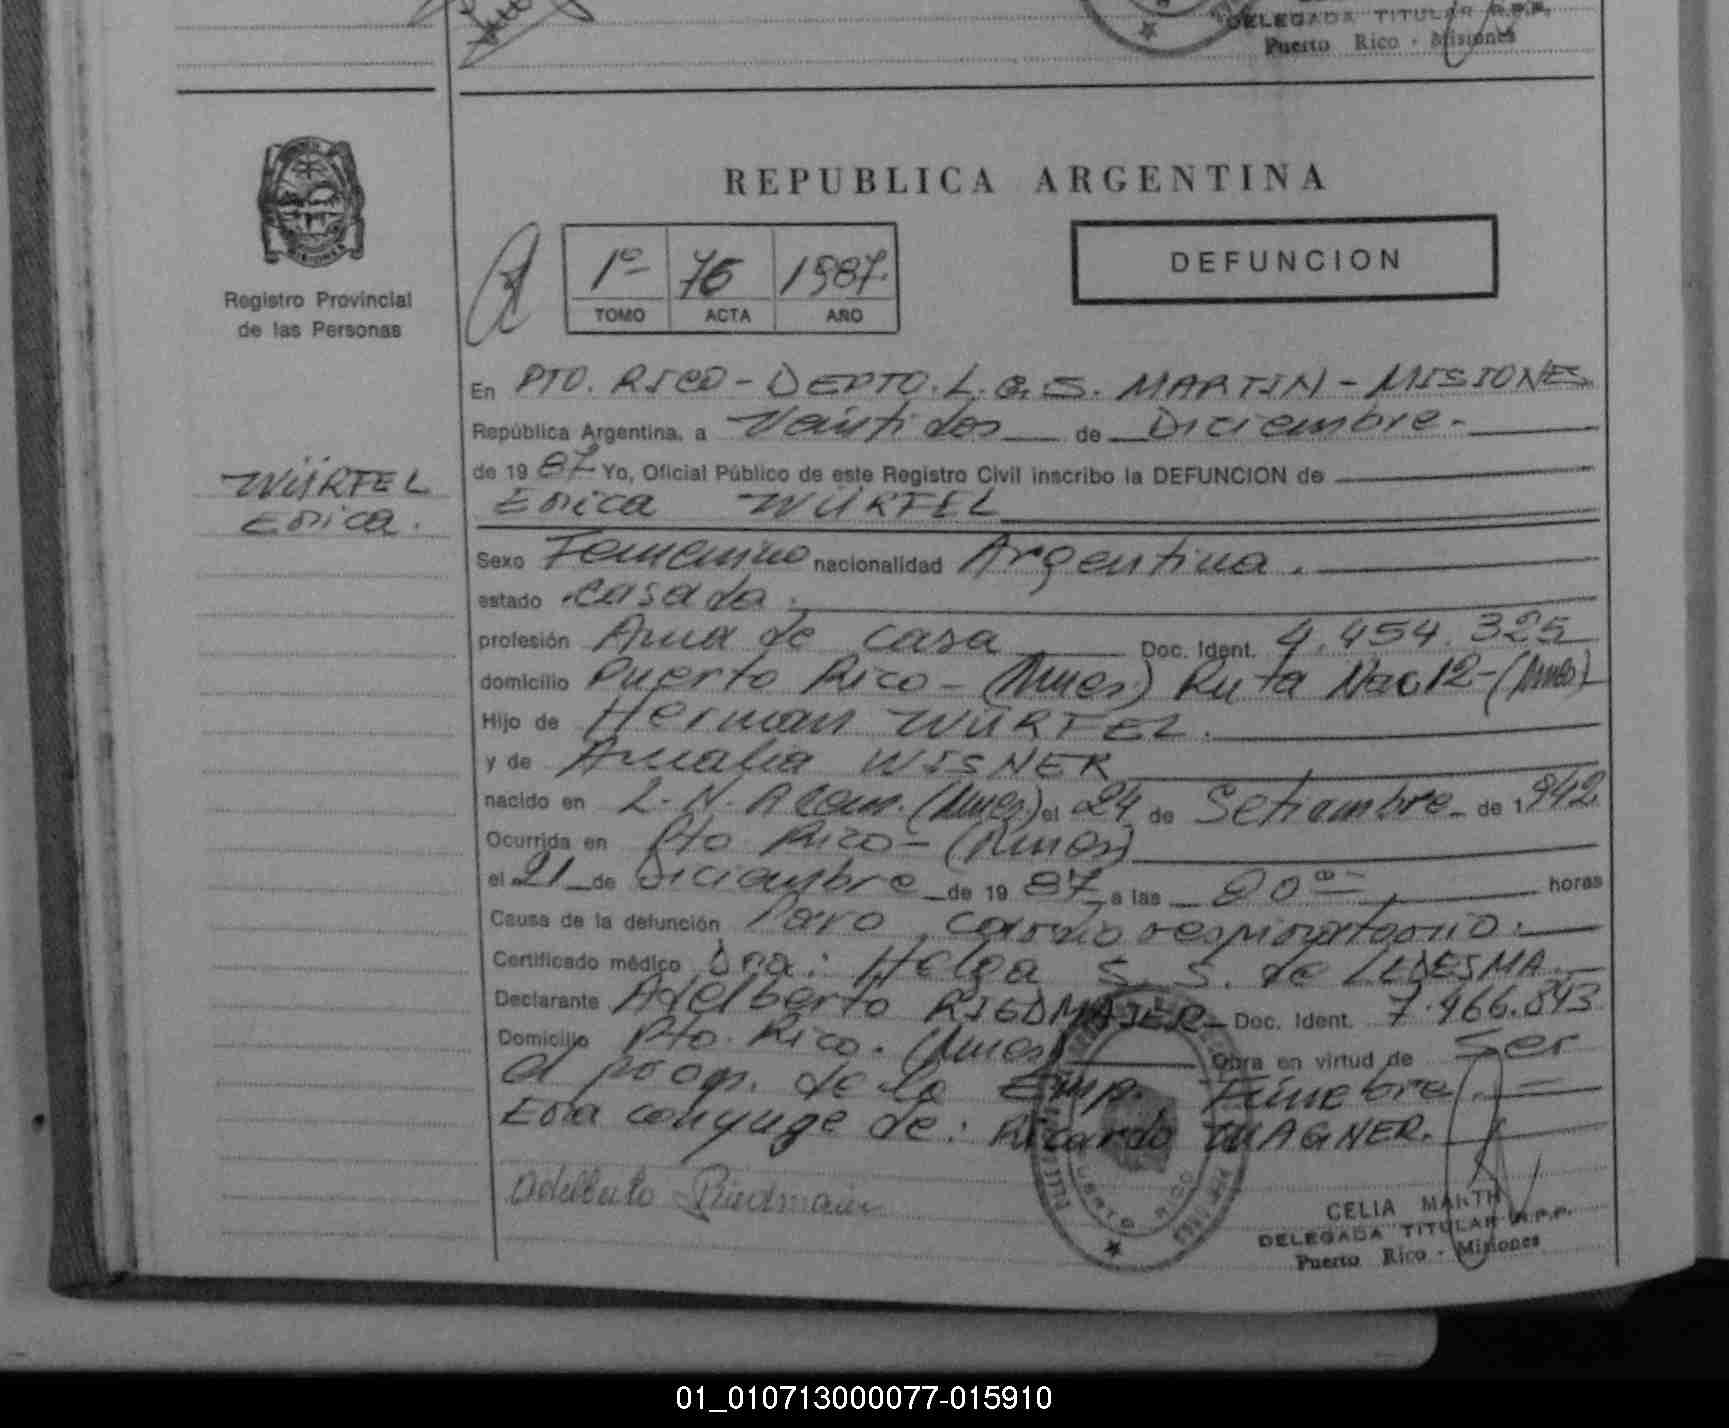 DELEGADA TITULAR R.P.P.
Puerto Rico - Misiones
Registro Provincial
de las Personas
REPUBLICA ARGENTINA
1º 76 1987.
TOMO ACTA AÑO
DEFUNCION
En PTO. RICO - DEPTO. L. G. S. MARTIN - MISIONES
República Argentina, a Veintidos de Diciembre.-
de 1987 Yo, Oficial Público de este Registro Civil inscribo la DEFUNCION de
WÜRFEL
Erica.
Erica WÜRFEL
Sexo Femenino nacionalidad Argentina.
estado casada.
profesión Ama de casa Doc. Ident. 4.454.325
domicilio Puerto Rico - (Mnes) Ruta Nac 12 - (Mnes)
Hijo de Herman WÜRFEL.
y de Amalia WISNER
nacido en L. N. Alem. (Mnes.) el 24 de Setiembre de 1942
Ocurrida en Pto Rico - (Mnes)
el 21 de Diciembre de 1987 a las 20 horas
Causa de la defunción Paro cardio respiratorio.
Certificado médico Dra: Helga S. S. de LEDESMA.
Declarante Adelberto RIEDMAIER Doc. Ident. 7.466.843
Domicilio Pto. Rico. (Mnes) Obra en virtud de Ser
el prop. de la Emp. Fúnebre.
Era conyuge de: Ricardo WAGNER.
Adelberto Riedmaier
PUERTO RICO
CELIA MARTH
DELEGADA TITULAR R.P.P.
Puerto Rico - Misiones
01_010713000077-015910